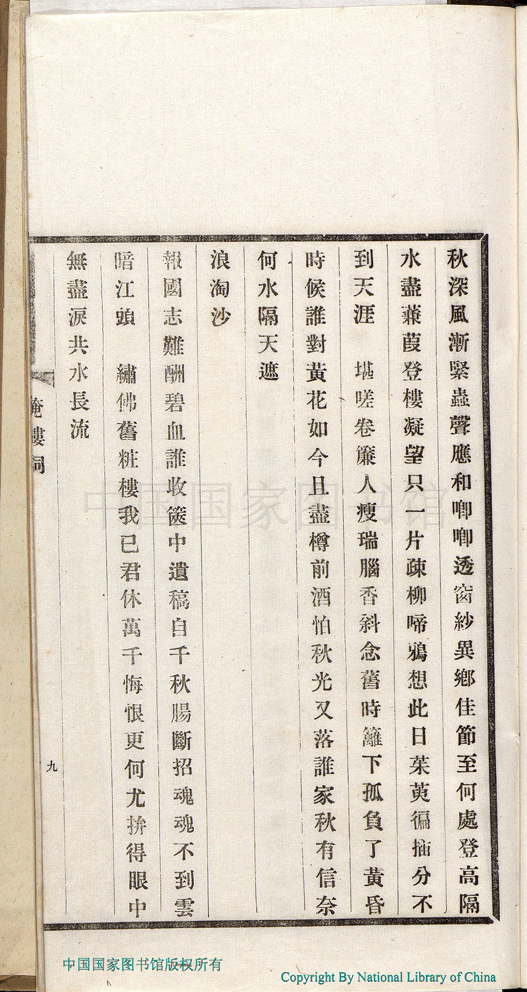 秋深風漸緊蟲聲應和唧唧透窗紗異鄉佳節至何處登高隔
水盡蒹葭登樓凝望只一片疎柳啼鴉想此日茱萸徧插分不
到天涯　堪嗟卷簾人瘦瑞腦香斜念舊時籬下孤負了黃昏
時候誰對黃花如今且盡樽前酒怕秋光又落誰家秋有信奈
何水隔天遮
浪淘沙
報國志難酬碧血誰收篋中遺稿自千秋腸斷招魂魂不到雲
暗江頭　繡佛舊粧樓我已君休萬千悔恨更何尤拚得眼中
無盡淚共水長流
樓詞
九
中国国家图书馆
中国国家图书馆版权所有
Copyright By National Library of China